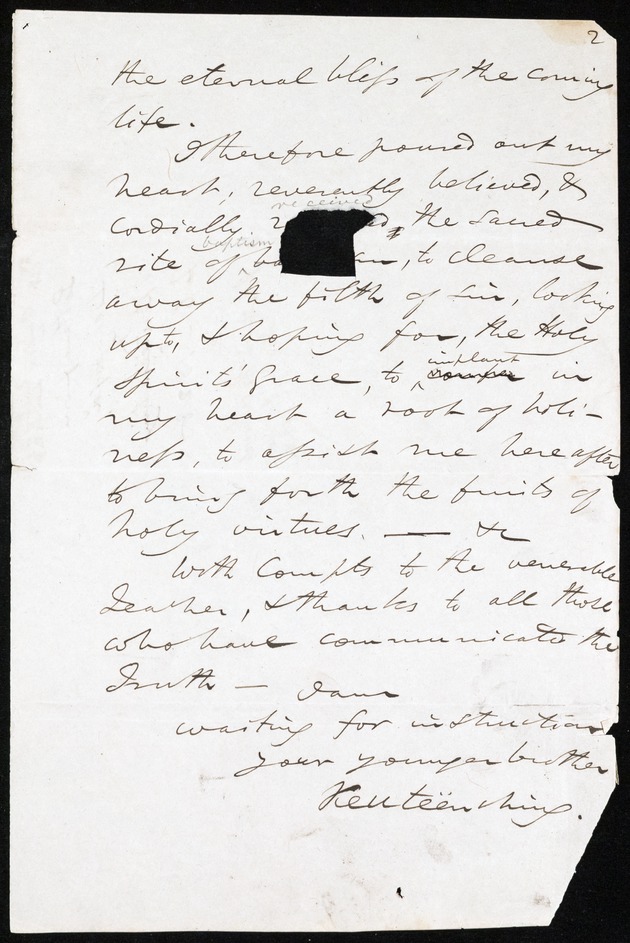 2
the eternal bliss of the coming
life.
I therefore poured out my
heart, reverently believed, &
received
cordially the Sacred
baptism
rite of, to cleanse
away the filth of sin, looking
up to, & hoping for, the Holy
implant
Spirit's Grace, to in
my heart a root of holi-
ness, to assist me hereafter
to bring forth the fruits of
holy virtues. — &c
With Compts to the venerable
Teacher, & thanks to all those
who have communicated the
Truth — I am
waiting for instruction
your younger brother